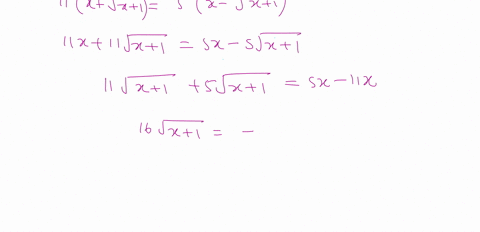 11(x+√x+1)= 5(x-√x+1)
11x+11√x+1 = 5x-5√x+1
11√x+1 +5√x+1 = 5x-11x
16√x+1 = -